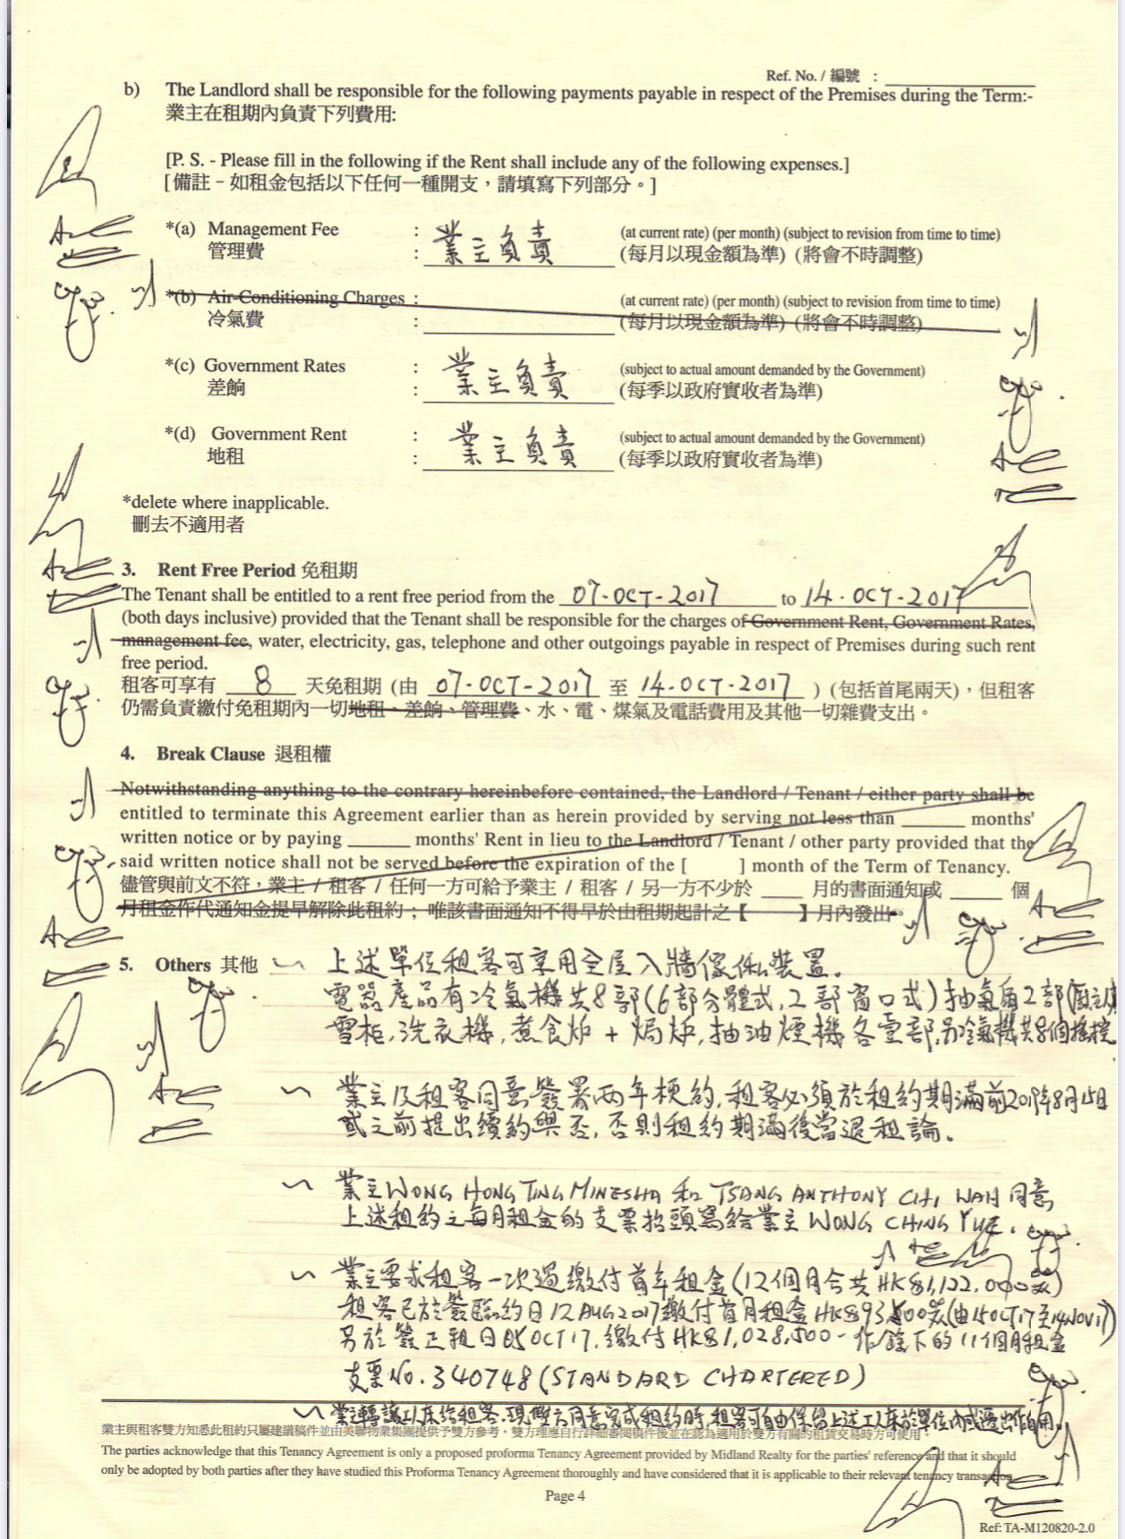 Ref. No. / 編號 :
b) The Landlord shall be responsible for the following payments payable in respect of the Premises during the Term:-
業主在租期內負責下列費用:
[P. S. - Please fill in the following if the Rent shall include any of the following expenses.]
[備註 – 如租金包括以下任何一種開支，請填寫下列部分。]
*(a) Management Fee : 業主負責 (at current rate) (per month) (subject to revision from time to time)
管理費 : (每月以現金額為準) (將會不時調整)
*(b) Air-Conditioning Charges : (at current rate) (per month) (subject to revision from time to time)
冷氣費 : (每月以現金額為準) (將會不時調整)
*(c) Government Rates : 業主負責 (subject to actual amount demanded by the Government)
差餉 : (每季以政府實收者為準)
*(d) Government Rent : 業主負責 (subject to actual amount demanded by the Government)
地租 : (每季以政府實收者為準)
*delete where inapplicable.
刪去不適用者
3. Rent Free Period 免租期
The Tenant shall be entitled to a rent free period from the 07-OCT-2017 to 14-OCT-2017
(both days inclusive) provided that the Tenant shall be responsible for the charges of Government Rent, Government Rates,
management fee, water, electricity, gas, telephone and other outgoings payable in respect of Premises during such rent
free period.
租客可享有 8 天免租期 (由 07-OCT-2017 至 14-OCT-2017 ) (包括首尾兩天)，但租客
仍需負責繳付免租期內一切地租、差餉、管理費、水、電、煤氣及電話費用及其他一切雜費支出。
4. Break Clause 退租權
Notwithstanding anything to the contrary hereinbefore contained, the Landlord / Tenant / either party shall be
entitled to terminate this Agreement earlier than as herein provided by serving not less than ______ months'
written notice or by paying ______ months' Rent in lieu to the Landlord / Tenant / other party provided that the
said written notice shall not be served before the expiration of the [ ] month of the Term of Tenancy.
儘管與前文不符，業主 / 租客 / 任何一方可給予業主 / 租客 / 另一方不少於 ____ 月的書面通知或 ____ 個
月租金作代通知金提早解除此租約；唯該書面通知不得早於由租期起計之【 】月內發出。
5. Others 其他 ~ 上述單位租客可享用全屋入牆傢俬裝置.
電器產品有冷氣機共8部(6部分體式, 2部窗口式) 抽氣扇2部
雪柜, 洗衣機, 煮食炉 + 焗炉, 抽油煙機各壹部, 另冷氣機共8個搖控.
~ 業主及租客同意簽署兩年梗約, 租客必須於租約期滿前2019年8月15日
或之前提出續約與否, 否則租約期滿後當退租論.
~ 業主WONG HONG TING MINESHA 和 TSANG ANTHONY CHI WAH 同意
上述租約之每月租金的支票抬頭寫給業主 WONG CHING YUE.
~ 業主要求租客一次過繳付首年租金(12個月合共 HK$1,122,000)
租客已於簽臨約日12 AUG 2017繳付首月租金HK$93,500(由15OCT17至14NOV17)
另於簽正租日 OCT17, 繳付HK$1,028,500- 作餘下的11個月租金
支票No. 340748 (STANDARD CHARTERED)
~ 業主轉讓 給租客. 現雙方同意完成租約時, 租客可自由保留上述
業主與租客雙方知悉此租約只屬建議稿件並由美聯物業集團提供予雙方參考，雙方理應自行詳細審閱稿件後並在認為適用於雙方有關的租賃交易時方可使用。
The parties acknowledge that this Tenancy Agreement is only a proposed proforma Tenancy Agreement provided by Midland Realty for the parties' reference and that it should
only be adopted by both parties after they have studied this Proforma Tenancy Agreement thoroughly and have considered that it is applicable to their relevant tenancy transaction.
Page 4
Ref: TA-M120820-2.0